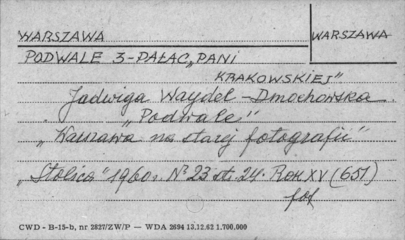 WARSZAWA
WARSZAWA
PODWALE 3-PAŁAC „PANI
KRAKOWSKIEJ"
Jadwiga Waydel-Dmochowska
„Podwale"
„Warszawa na starej fotografii"
„Stolica" 1960 r. Nº 23 str. 24. Rok XV (651)
fot
CWD - B-15-b, nr 2827/ZW/P — WDA 2694 13.12.62 1.700.000